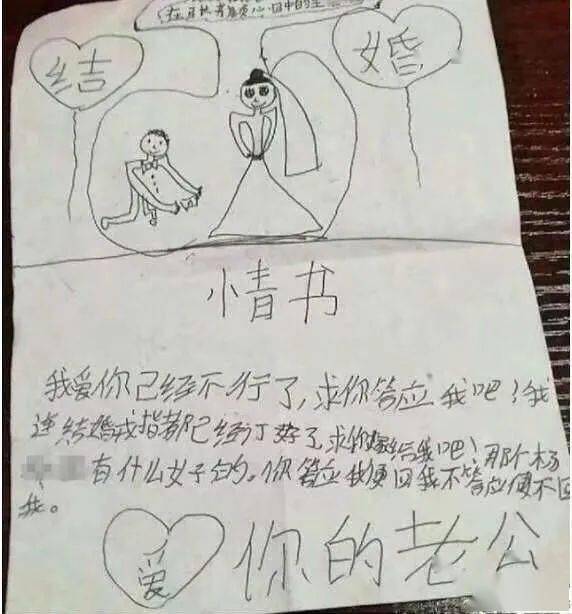 结
婚
情书
我爱你已经不行了,求你答应我吧!我
连结婚戒指都已经订好了,求你嫁给我吧!那个杨
有什么好的。你答应我便回我不答应便不回
我。
爱
你的老公